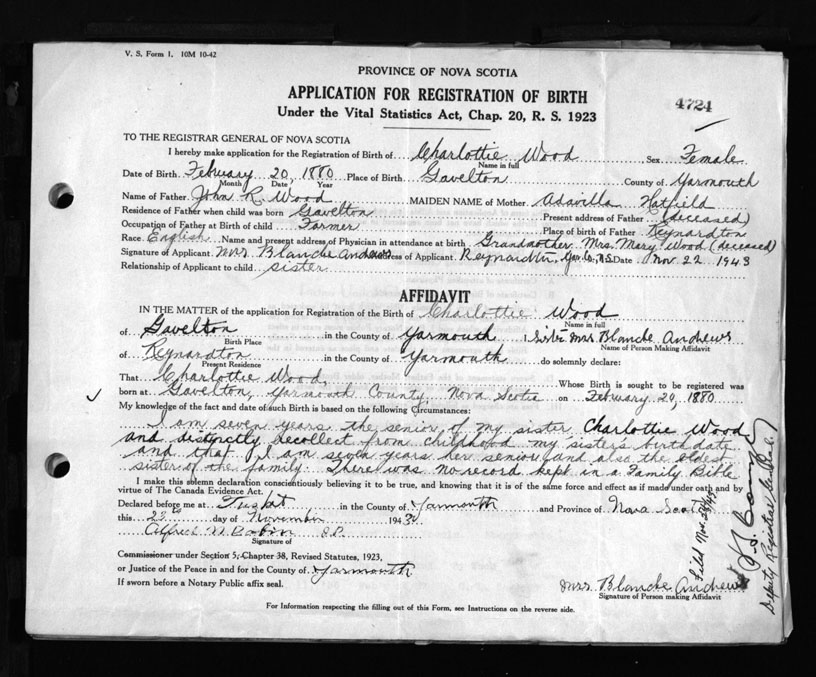 V. S. Form 1. 10M 10-42
PROVINCE OF NOVA SCOTIA
APPLICATION FOR REGISTRATION OF BIRTH
4724
Under the Vital Statistics Act, Chap. 20, R. S. 1923
TO THE REGISTRAR GENERAL OF NOVA SCOTIA
I hereby make application for the Registration of Birth of Charlottie Wood Sex Female
Name in full
Date of Birth February 20, 1880 Place of Birth Gavelton County of Yarmouth
Month Date Year
Name of Father John R. Wood MAIDEN NAME of Mother Hatfield
Residence of Father when child was born Gavelton Present address of Father (deceased)
Occupation of Father at Birth of child Farmer Place of birth of Father Reynardton
Race English Name and present address of Physician in attendance at birth Grandmother Mrs. Mary Wood (deceased)
Signature of Applicant Mrs Blanche Andrews Address of Applicant Reynardton, N.S. Date Nov 22 1943
Relationship of Applicant to child sister
AFFIDAVIT
IN THE MATTER of the application for Registration of the Birth of Charlottie Wood
Name in full
of Gavelton in the County of Yarmouth I, Mrs Blanche Andrews
Birth Place Name of Person Making Affidavit
of Reynardton in the County of Yarmouth do solemnly declare:
Present Residence
That Charlottie Wood, Whose Birth is sought to be registered was
born at Gavelton, Yarmouth County, Nova Scotia on February 20, 1880
My knowledge of the fact and date of such Birth is based on the following Circumstances:
I am seven years the senior of my sister Charlottie Wood
and distinctly recollect from childhood my sister's birth date
and that I am seven years her senior and also the oldest
sister of the family. There was no record kept in a Family Bible
I make this solemn declaration conscientiously believing it to be true, and knowing that it is of the same force and effect as if made under oath and by
virtue of The Canada Evidence Act.
Declared before me at Tusket in the County of Yarmouth and Province of Nova Scotia
this 23 day of November 1943
Alfred J.P.
Signature of
Commissioner under Section 5, Chapter 38, Revised Statutes, 1923,
or Justice of the Peace in and for the County of Yarmouth
If sworn before a Notary Public affix seal.
Mrs Blanche Andrews
Signature of Person making Affidavit
For Information respecting the filling out of this Form, see Instructions on the reverse side.
Filed Nov.
Deputy Registrar General